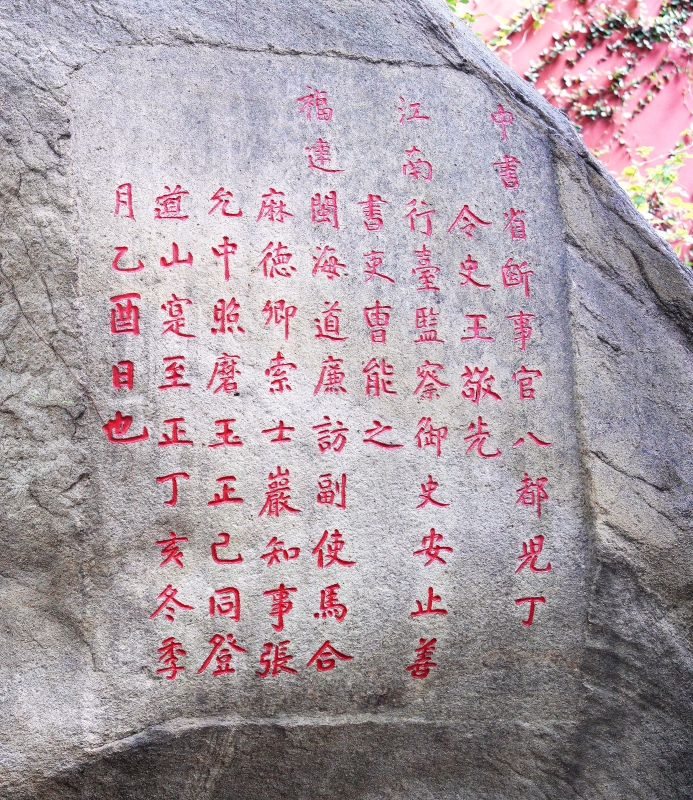 中書省斷事官八都児丁
令史王敬先
江南行臺監察御史安止善
書吏曹能之
福建閩海道廉訪副使馬合
麻德卿索士巖知事張
允中照磨玉正己同登
道山寔至正丁亥冬季
月乙酉日也